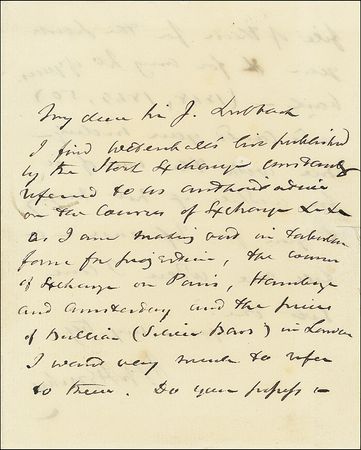 My dear Sir J. Lubbock
I find Wetenhall's list published
by the Stock Exchange constantly
referred to as
on the Courses of Exchange &c &c
As I am making out in tabular
form for projection, the course
of Exchange on Paris, Hamburg
and Amsterdam and the prices
of Bullion (Silver Bars) in London
I want very much to refer
to them. Do you possess a